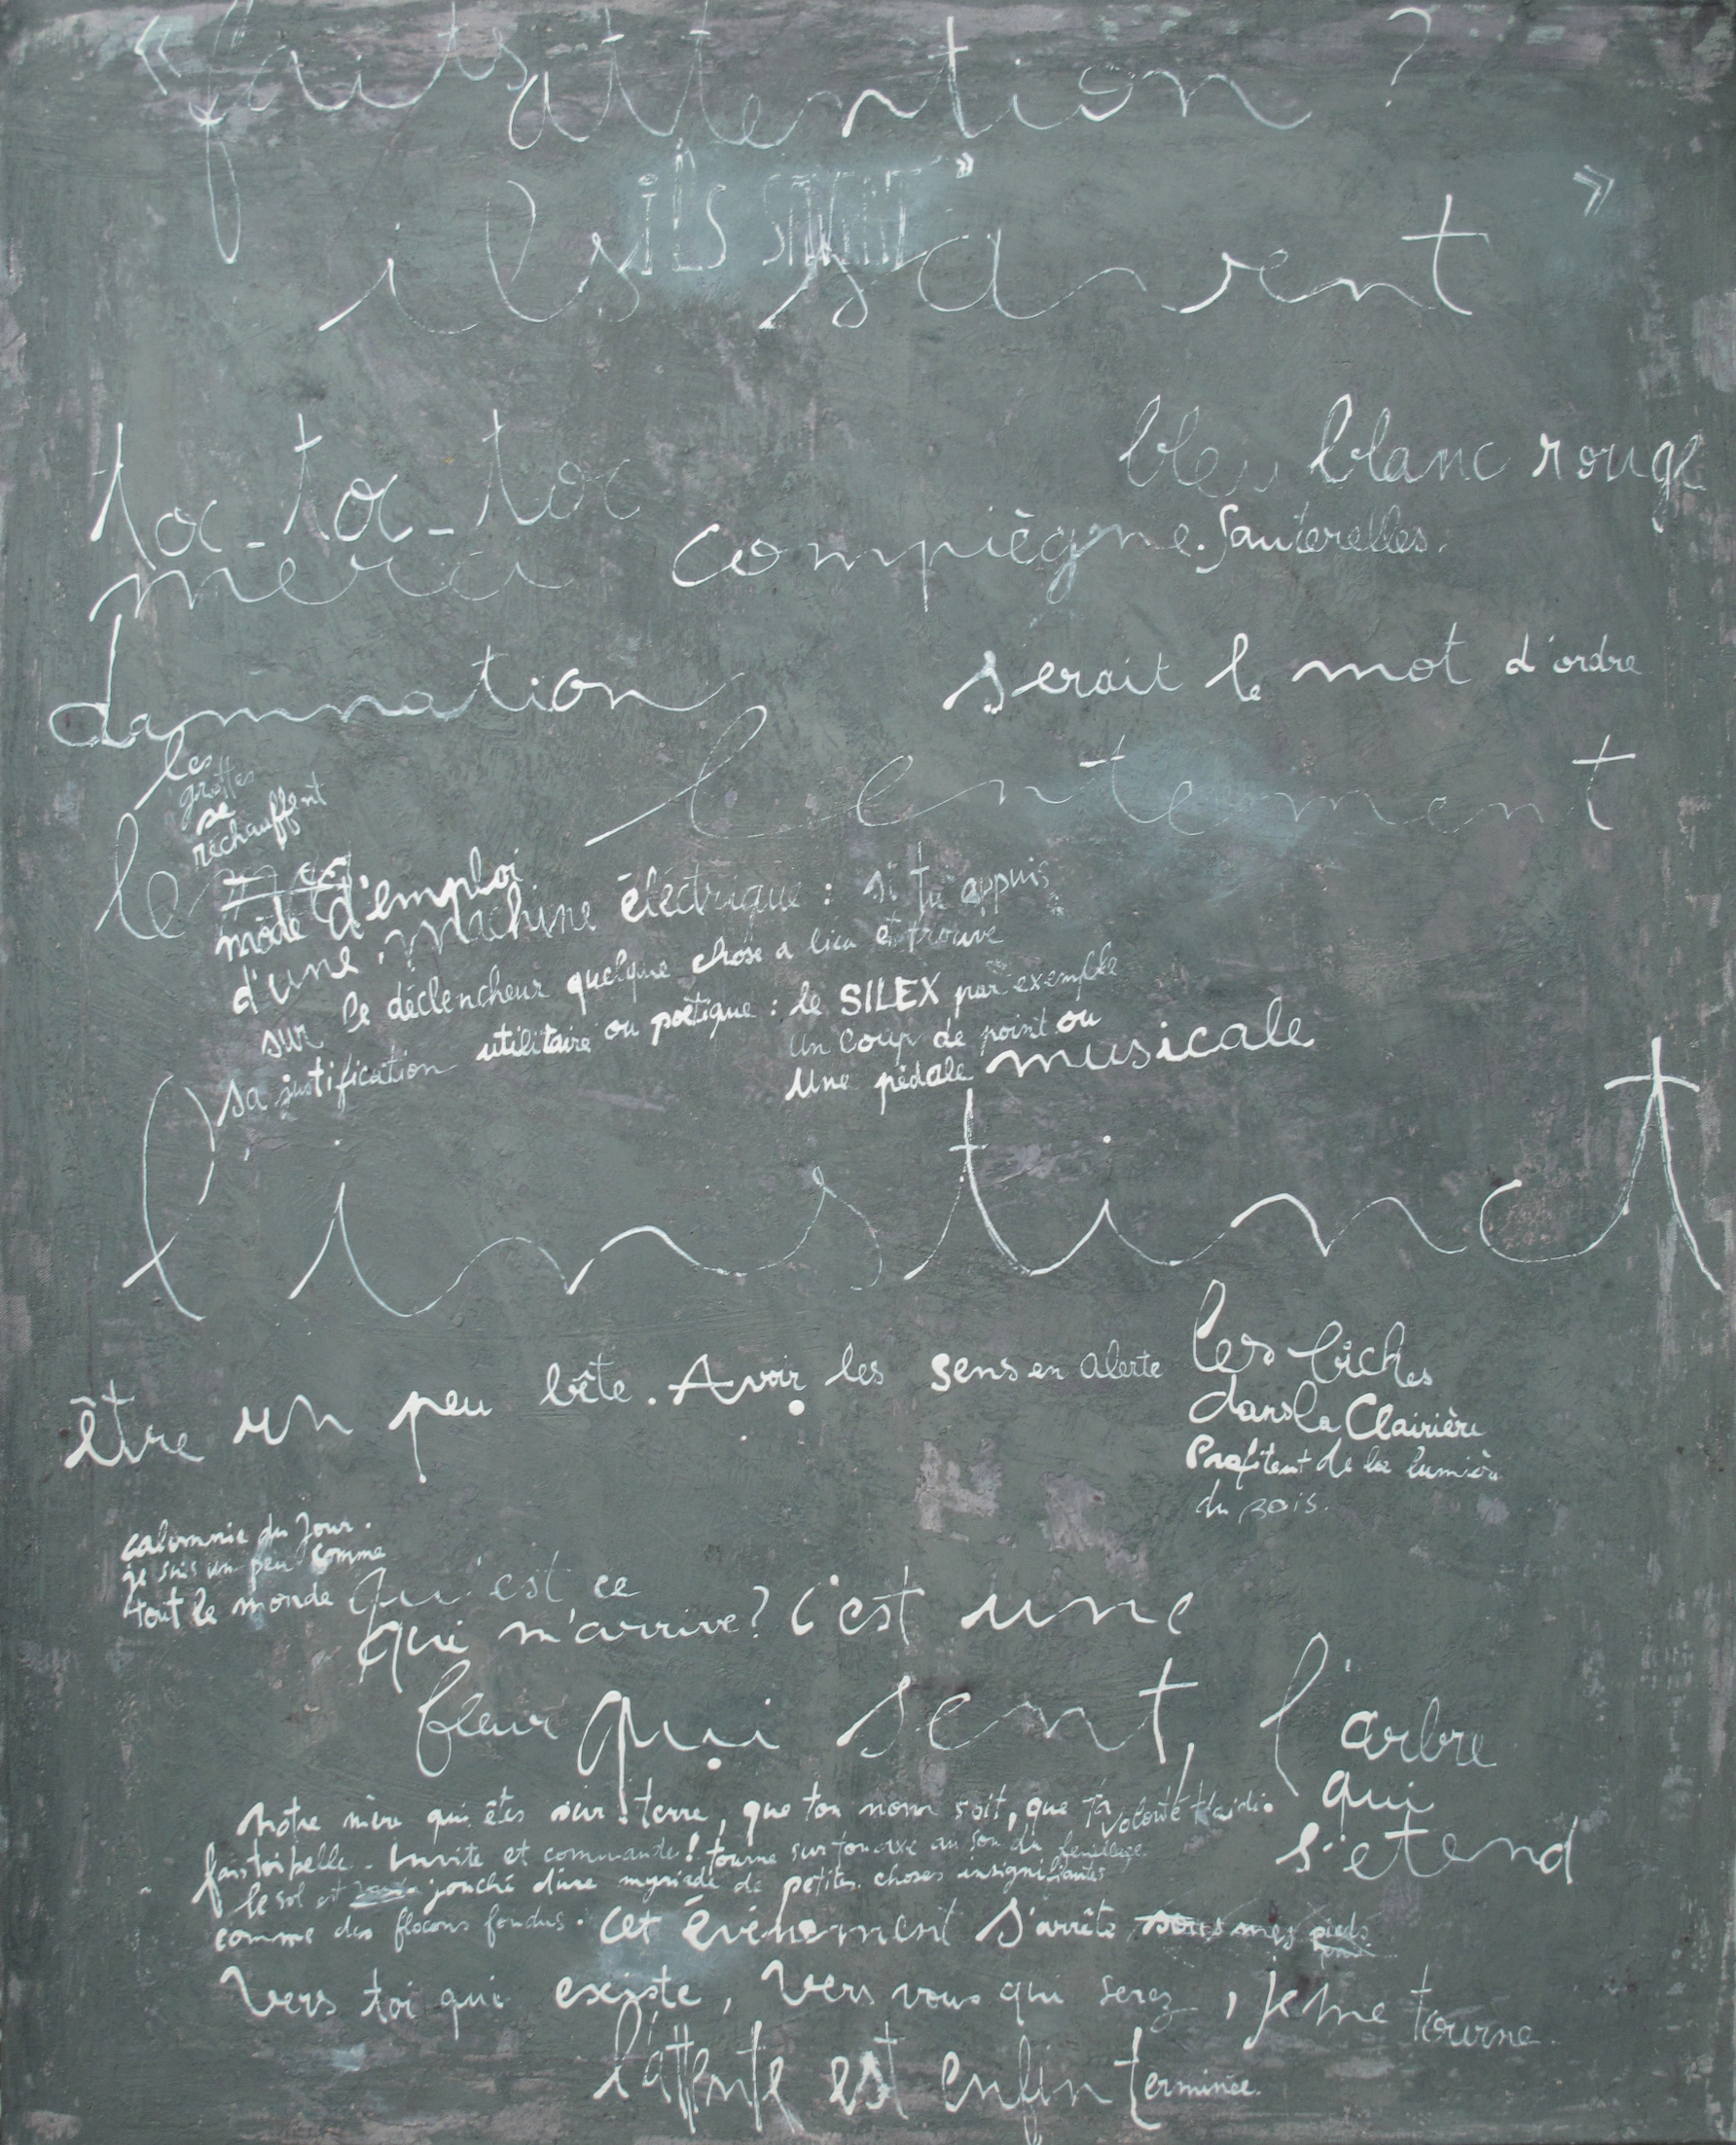 « fais attention ?
ils savent »
ils savent »
toc-toc-toc
bleu blanc rouge
merci compiègne. Sauterelles.
damnation serait le mot d'ordre
les
grottes
se
réchauffent
lentement
le
mode d'emploi
d'une machine éléctrique : si tu appuis
sur le déclencheur quelque chose a lieu et trouve
sa justification utilitaire ou poëtique : le SILEX par exemple
un coup de point ou
une pédale musicale
l'instinct
être un peu bête. Avoir les sens en alerte
les biches
dans la Clairière
Profitent de la lumière
du
calomnie du jour.
je suis un peu comme
tout le monde
qu'est ce
qui m'arrive ? C'est une
fleur qui sent, l'arbre
qui
s'étend
notre mère qui êtes sur terre, que ton nom soit, que ta volonté
fais toi belle. Invite et commande ! tourne sur ton axe au son du feuillage
le sol est jonché d'une myriade de petites choses insignifiantes
comme des flocons fondus. cet évènement s'arrête sous mes pieds
Vers toi qui existe, Vers vous qui serez, je me tourne.
l'attente est enfin terminée.